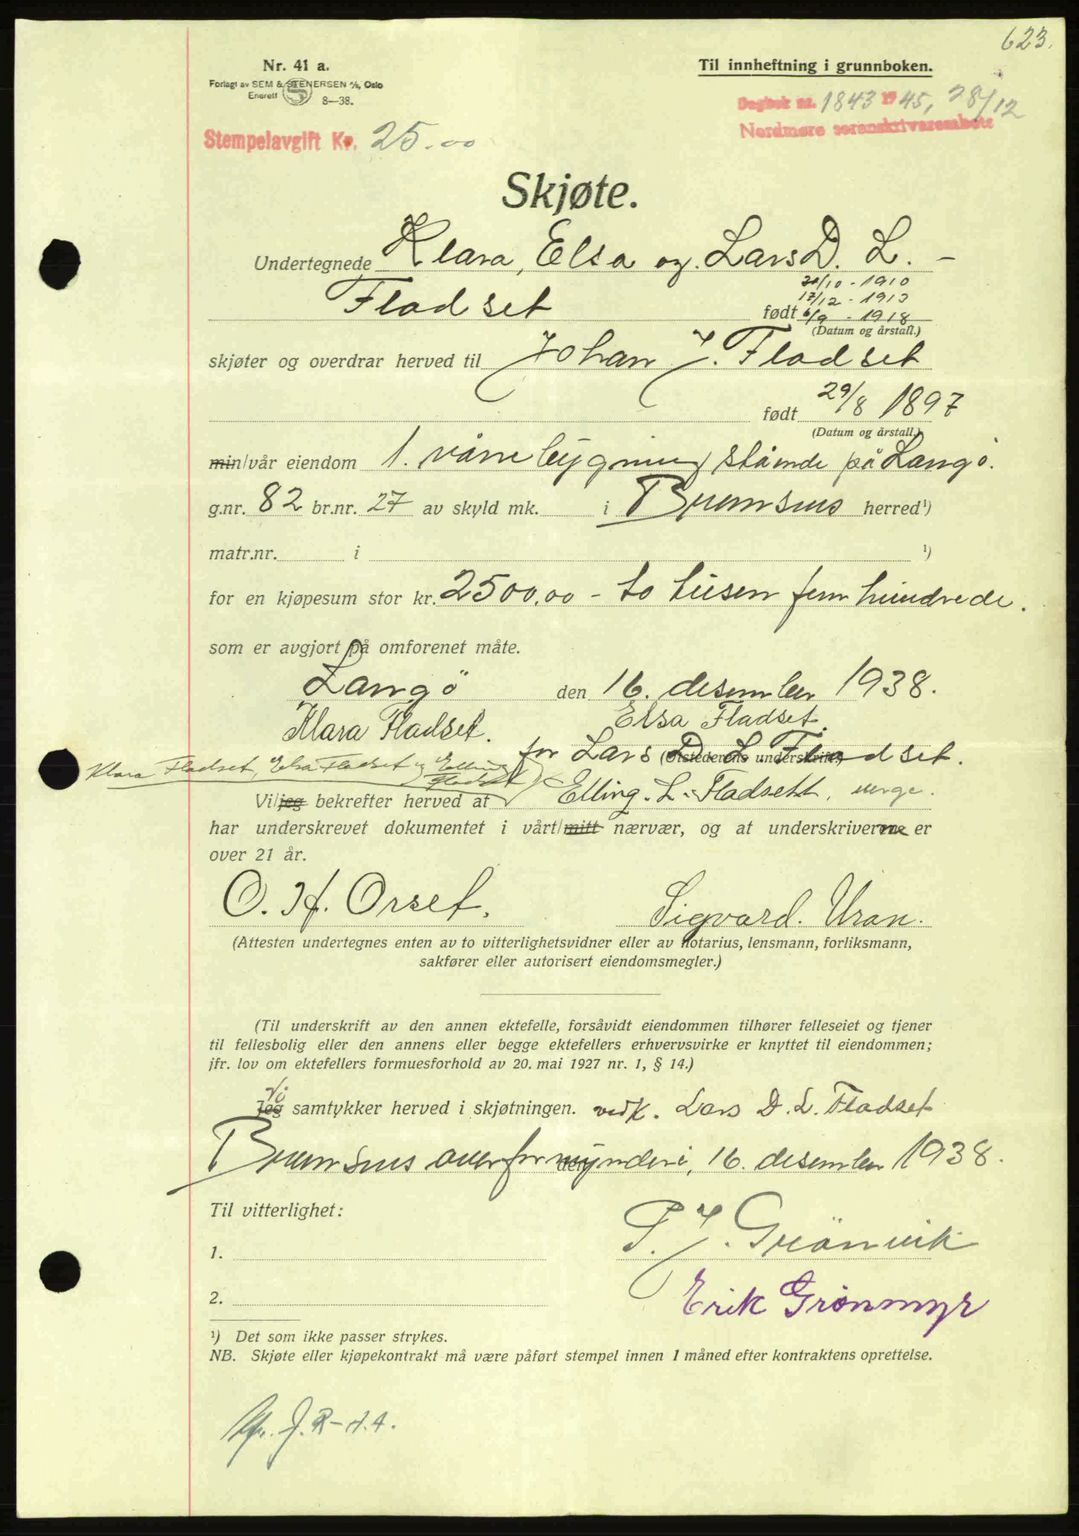 623.
Nr. 41 a.
Forlagt av SEM & STENERSEN A/S, Oslo
Enerett 8–38.
Til innheftning i grunnboken.
Dagbok nr. 1843 1945, 28/12
Nordmøre sorenskrivarembete
Stempelavgift Kr. 25.00
Skjøte.
Undertegnede Klara, Elsa og. Lars D. L. –
Fladset
20/10 - 1910
17/12 - 1913
født 6/9 - 1918
(Datum og årstall.)
skjøter og overdrar herved til Johan J. Fladset
født 29/8 1897
(Datum og årstall.)
min/vår eiendom 1. våne bygning stånde på Langö.
g.nr. 82 br.nr. 27 av skyld mk. i Bremsnes herred¹)
matr.nr. i ¹)
for en kjøpesum stor kr. 2500,00 – to tusen fem hundrede.
som er avgjort på omforenet måte.
Langö den 16. desember 1938.
Klara Fladset. Elsa Fladset.
for Lars D. L. Fladset.
(Utstederens underskrift)
Klara Fladset, Elsa Fladset og Elling
Fladset
Vi/jeg bekrefter herved at Elling. L. Fladsett. verge.
har underskrevet dokumentet i vårt/mitt nærvær, og at underskriverne er
over 21 år.
O. H. Orset. Sigvard. Uran.
(Attesten undertegnes enten av to vitterlighetsvidner eller av notarius, lensmann, forliksmann,
sakfører eller autorisert eiendomsmegler.)
(Til underskrift av den annen ektefelle, forsåvidt eiendommen tilhører felleseiet og tjener
til fellesbolig eller den annens eller begge ektefellers erhvervsvirke er knyttet til eiendommen;
jfr. lov om ektefellers formuesforhold av 20. mai 1927 nr. 1, § 14.)
Vi
Jeg samtykker herved i skjøtningen. vedk. Lars D. L. Fladset
Bremsnes overformynderi, den 16. desember 1938.
Til vitterlighet:
P. J. Grönvik
1.
Erik Grönmyr
2.
¹) Det som ikke passer strykes.
NB. Skjøte eller kjøpekontrakt må være påført stempel innen 1 måned efter kontraktens oprettelse.